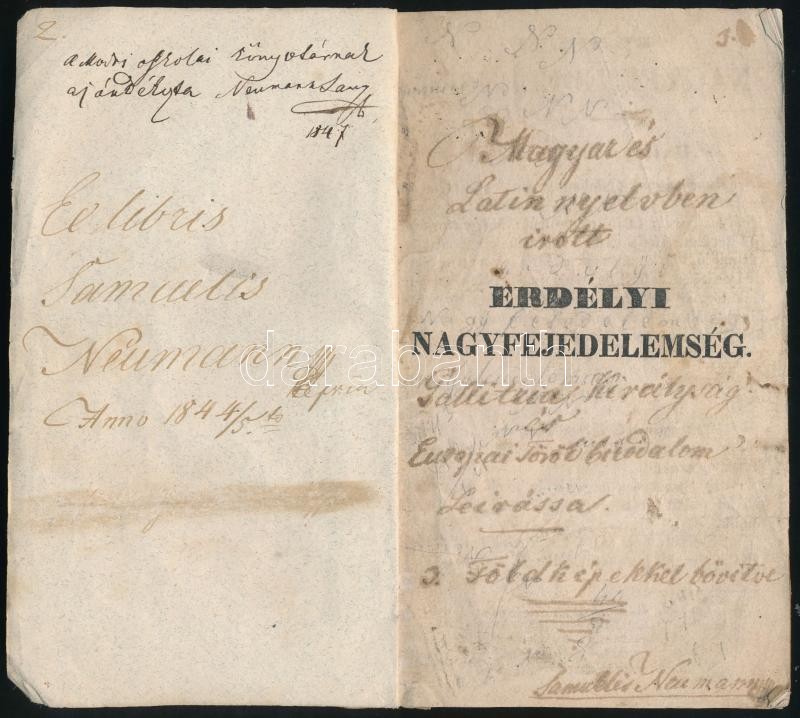 2.
a Modri oskolai könyvtárnak
ajándékta Neumann Samu
1847
Ex libris
Samuelis
Neumann
Anno 1844/5
3.
N N
Magyar és
Latin nyelvben
irott
ERDÉLYI
NAGYFEJEDELEMSÉG.
Gallitzia királyság
és
Europai Török birodalom
Leirássa.
3. Földképekkel bővitve
Samuelis Neumann
darabanth